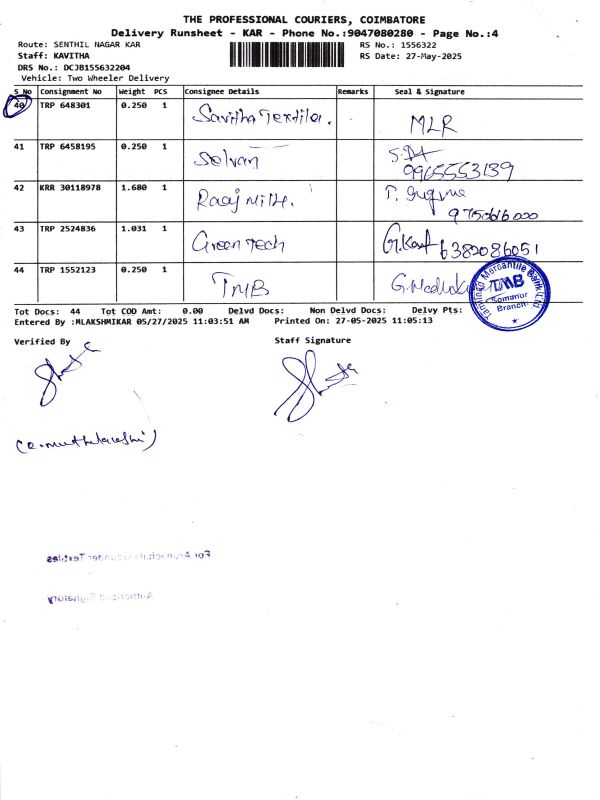 THE PROFESSIONAL COURIERS, COIMBATORE
Delivery Runsheet - KAR - Phone No.:9047080280 - Page No.:4
Route: SENTHIL NAGAR KAR RS No.: 1556322
Staff: KAVITHA RS Date: 27-May-2025
DRS No.: DCJB155632204
Vehicle: Two Wheeler Delivery
S_No Consignment No Weight PCS Consignee Details Remarks Seal & Signature
40 TRP 648301 0.250 1 Savitha Textiles. MLR
41 TRP 6458195 0.250 1 Selvan
9965553139
42 KRR 30118978 1.680 1 Raaj Mills.
9750616000
43 TRP 2524836 1.031 1 Green Tech 6380086051
44 TRP 1552123 0.250 1 TMB
Tamilnad Mercantile Bank Ltd
TMB
Somanur
Branch
Tot Docs: 44 Tot COD Amt: 0.00 Delvd Docs: Non Delvd Docs: Delvy Pts:
Entered By :MLAKSHMIKAR 05/27/2025 11:03:51 AM Printed On: 27-05-2025 11:05:13
Verified By Staff Signature